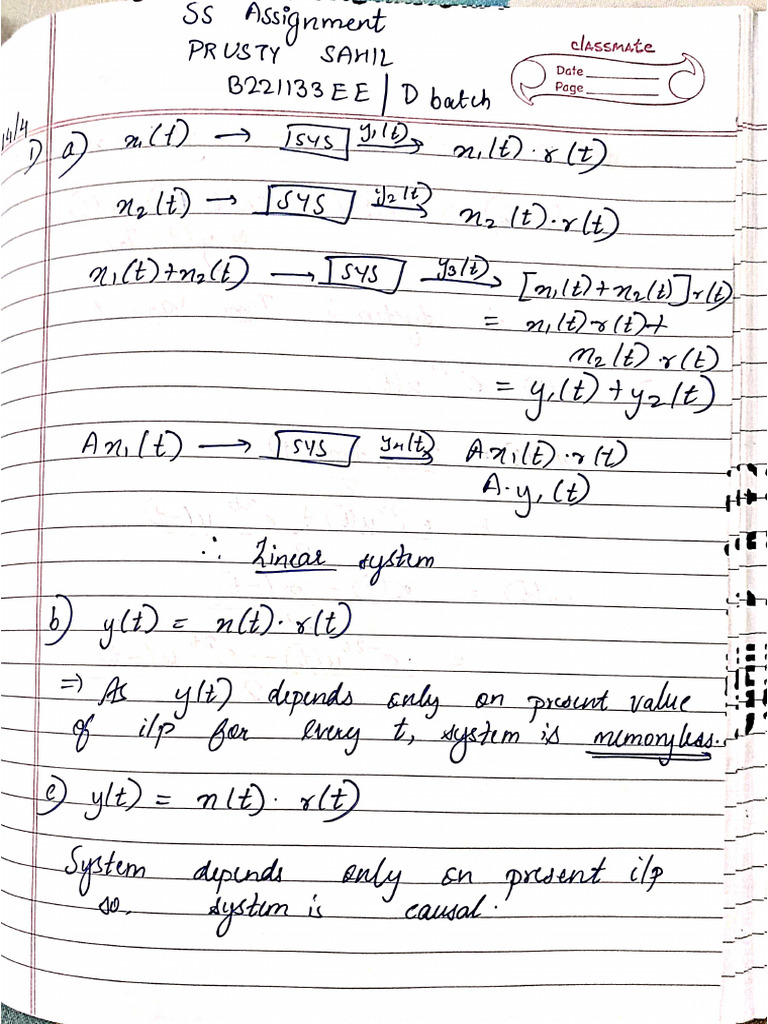 SS Assignment
PRUSTY SAHIL
B221133EE | D batch
classmate
Date
Page
14/4
1) a) x₁(t) → [SYS] y₁(t)→ x₁(t)·r(t)
x₂(t) → [SYS] y₂(t)→ x₂(t)·r(t)
x₁(t)+x₂(t) → [SYS] y₃(t)→ [x₁(t)+x₂(t)]r(t)
= x₁(t)·r(t)+
x₂(t)·r(t)
= y₁(t)+y₂(t)
Ax₁(t) → [SYS] y₄(t)→ Ax₁(t)·r(t)
A·y₁(t)
∴ Linear system
b) y(t) = x(t)·r(t)
⇒ As y(t) depends only on present value
of i/p for every t, system is memoryless.
c) y(t) = x(t)·r(t)
System depends only on present i/p
so, system is causal.